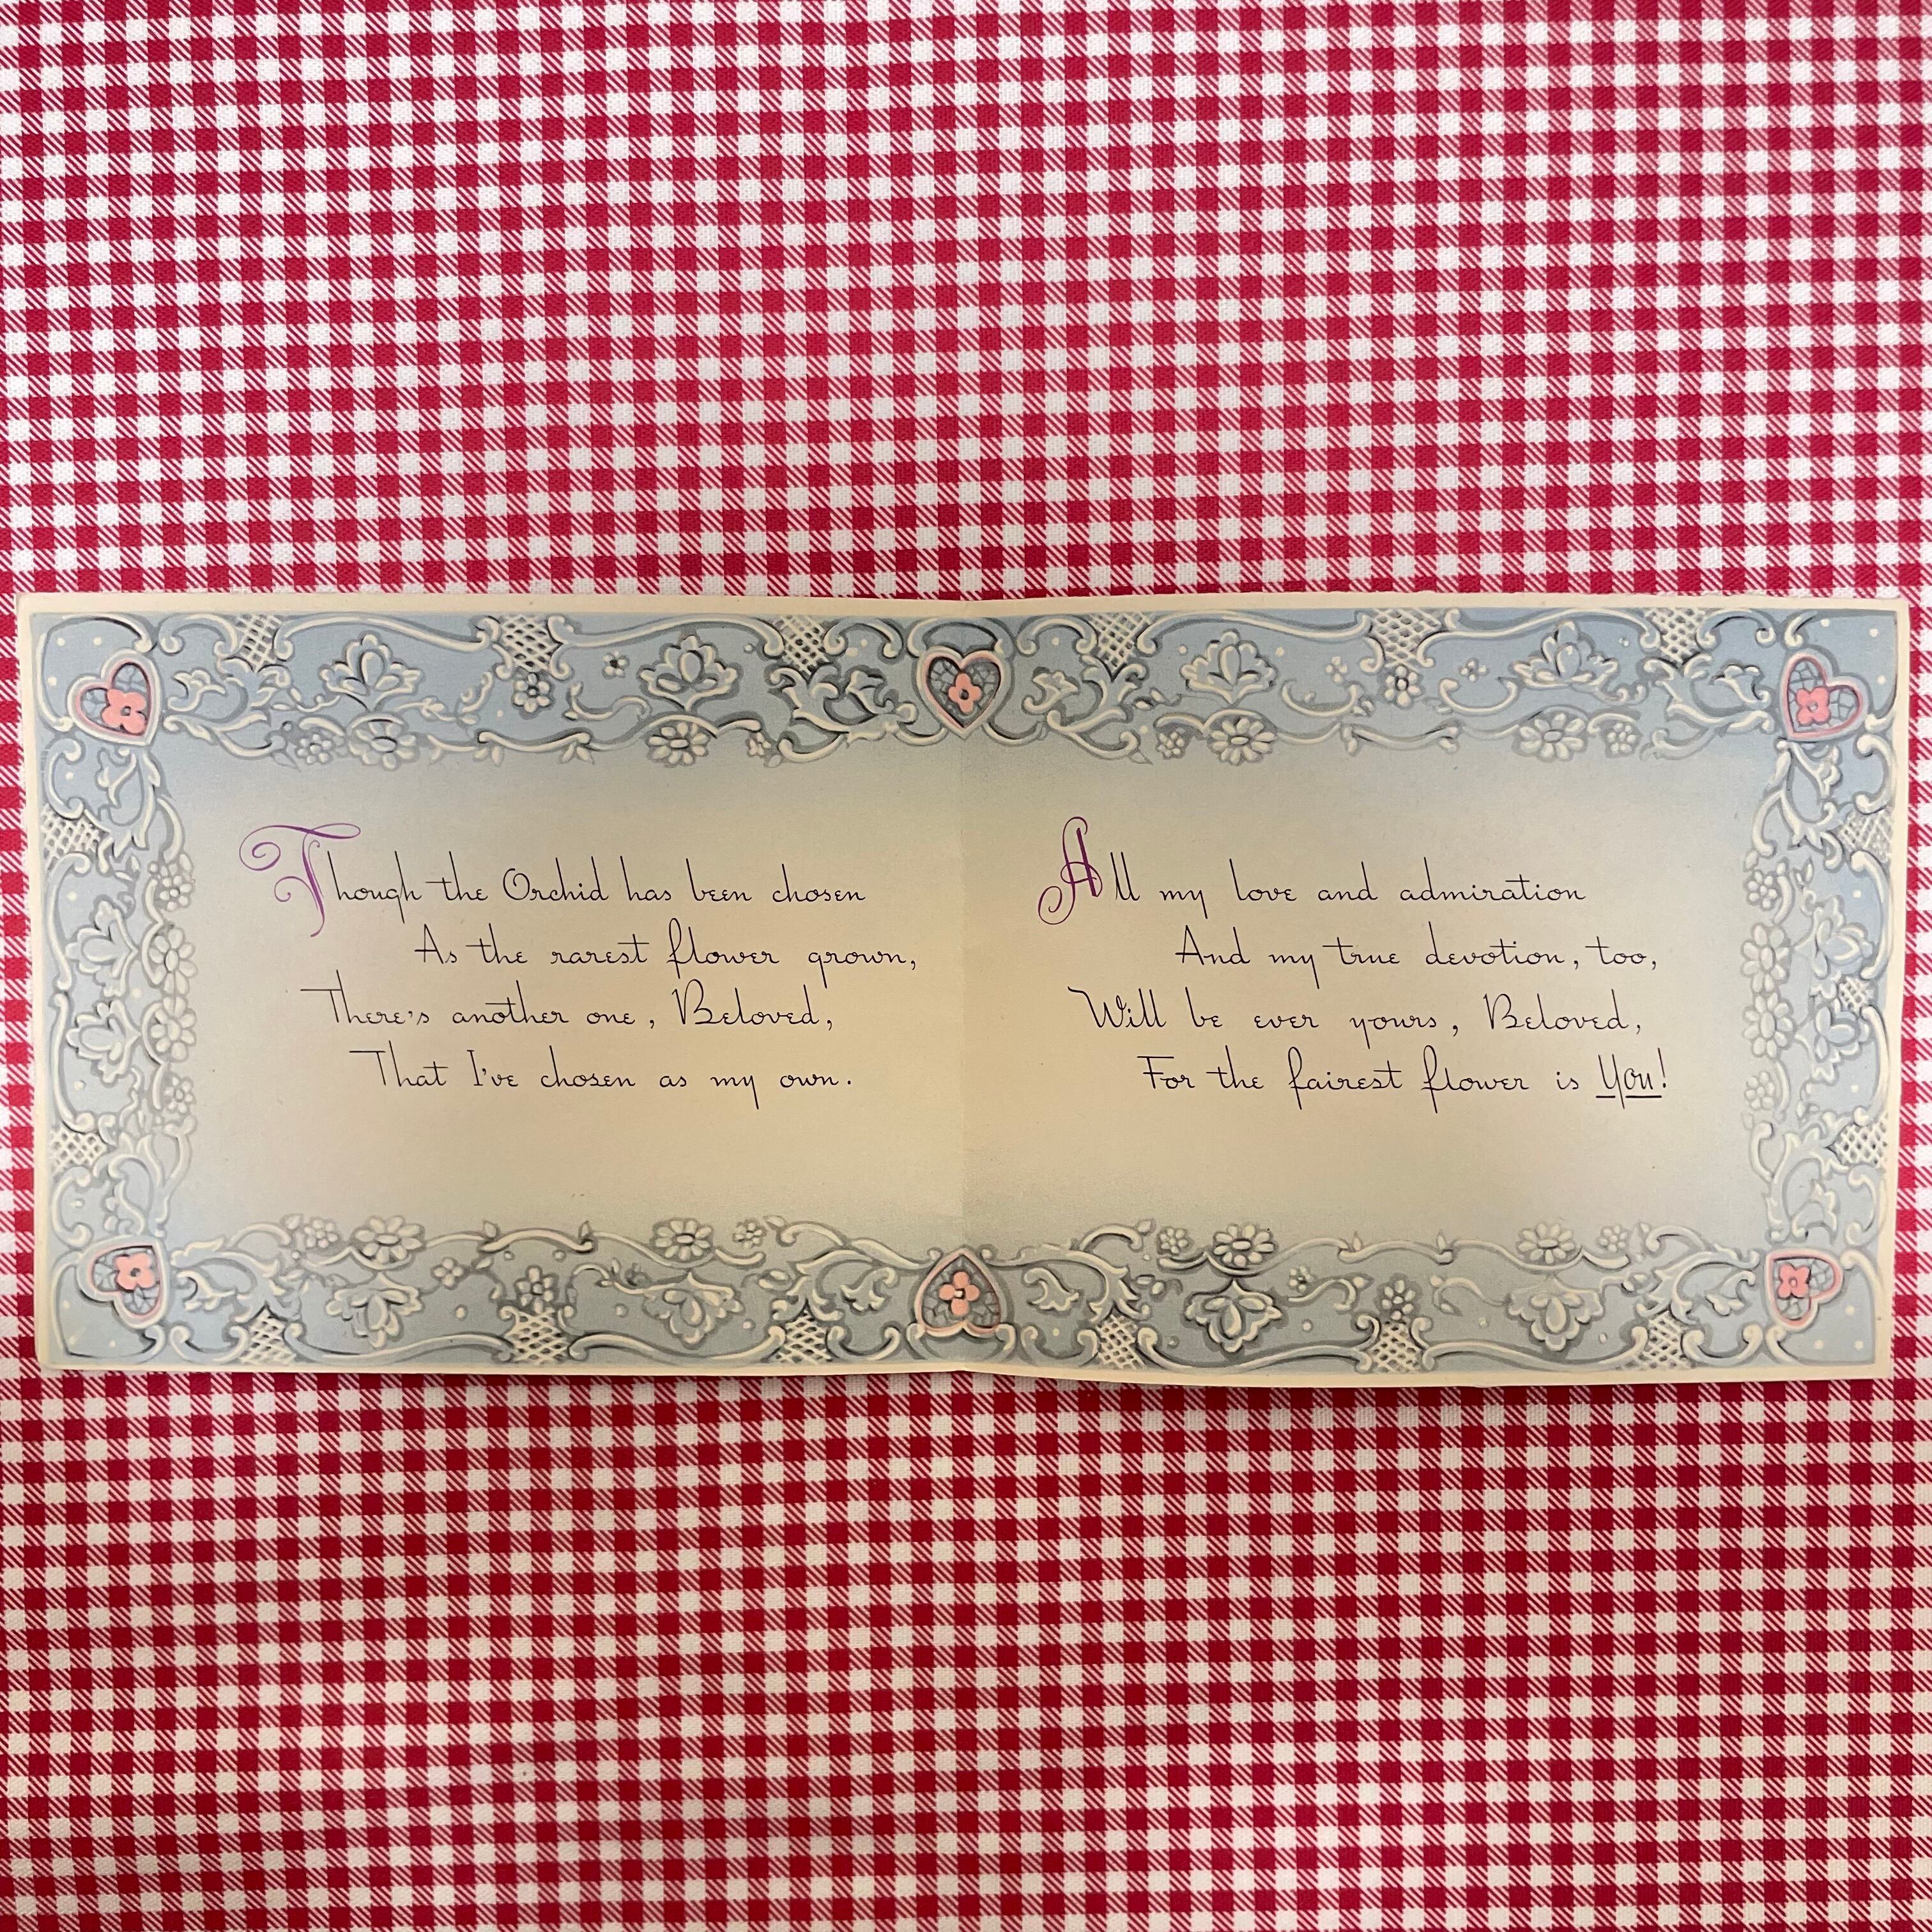 Though the Orchid has been chosen
As the rarest flower grown,
There's another one, Beloved,
That I've chosen as my own.
All my love and admiration
And my true devotion, too,
Will be ever yours, Beloved,
For the fairest flower is You!